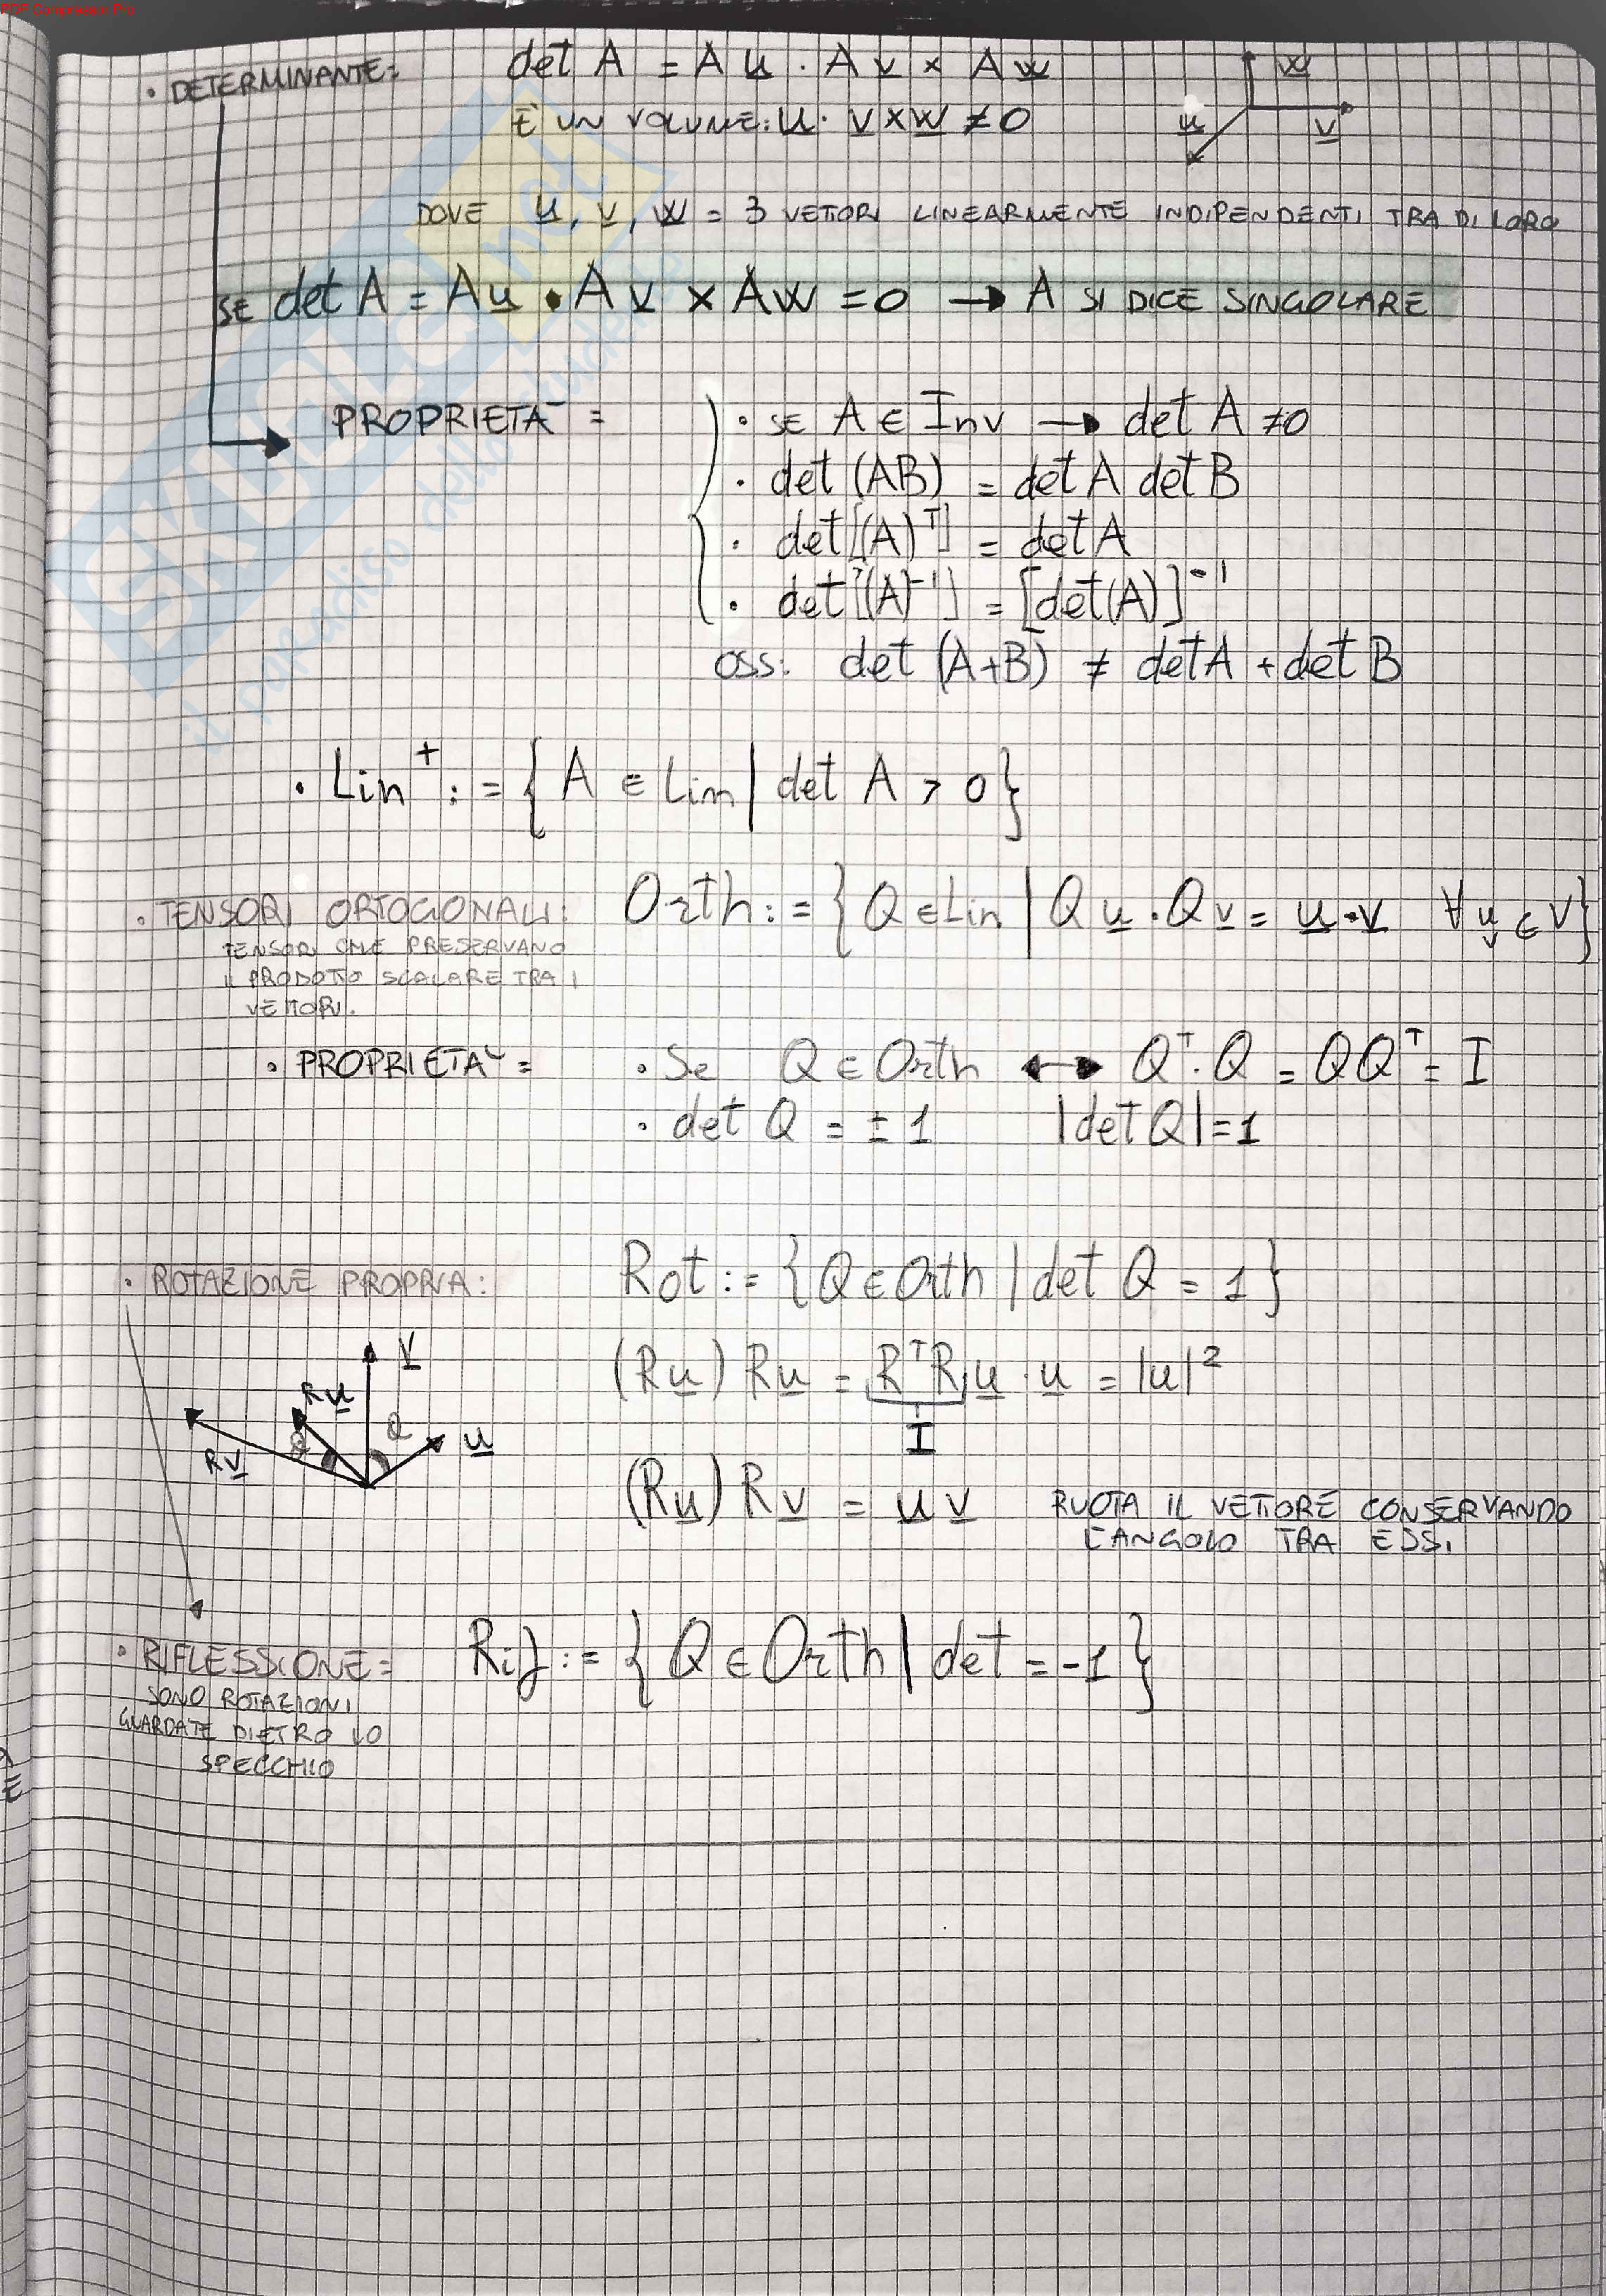 PDF Compressor Pro
· DETERMINANTE: det A = A u · A v × A w
È UN VOLUME: u · v × w ≠ 0
w
u
v
DOVE u, v, w = 3 VETTORI LINEARMENTE INDIPENDENTI TRA DI LORO
SE det A = A u · A v × A w = 0 → A SI DICE SINGOLARE
PROPRIETA' =
· SE A ∈ Inv → det A ≠ 0
· det (AB) = det A det B
· det [(A)ᵀ] = det A
· det [(A)⁻¹] = [det(A)]⁻¹
OSS: det (A+B) ≠ det A + det B
· Lin⁺ := { A ∈ Lin | det A > 0 }
· TENSORI ORTOGONALI: Orth := { Q ∈ Lin | Q u · Q v = u · v ∀ u, v ∈ V }
TENSORI CHE PRESERVANO
IL PRODOTTO SCALARE TRA I
VETTORI.
· PROPRIETA' = · Se Q ∈ Orth ↔ Qᵀ · Q = QQᵀ = I
· det Q = ± 1 |det Q| = 1
· ROTAZIONE PROPRIA: Rot := { Q ∈ Orth | det Q = 1 }
(R u) R u = Rᵀ R u · u = |u|²
I
v
R u
u
R v
(R u) R v = u v RUOTA IL VETTORE CONSERVANDO
L'ANGOLO TRA ESSI
· RIFLESSIONE = Rif := { Q ∈ Orth | det = -1 }
SONO ROTAZIONI
GUARDATE DIETRO LO
SPECCHIO
SKUOLA.net
il paradiso dello studente